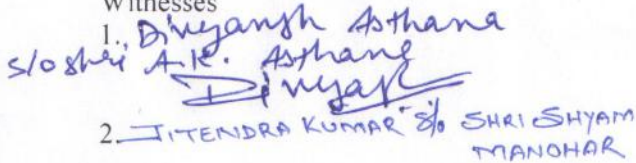 Witnesses
1. Divyansh Asthana
s/o shri A.K. Asthana
Divyansh
2. JITENDRA KUMAR S/o SHRI SHYAM
MANOHAR